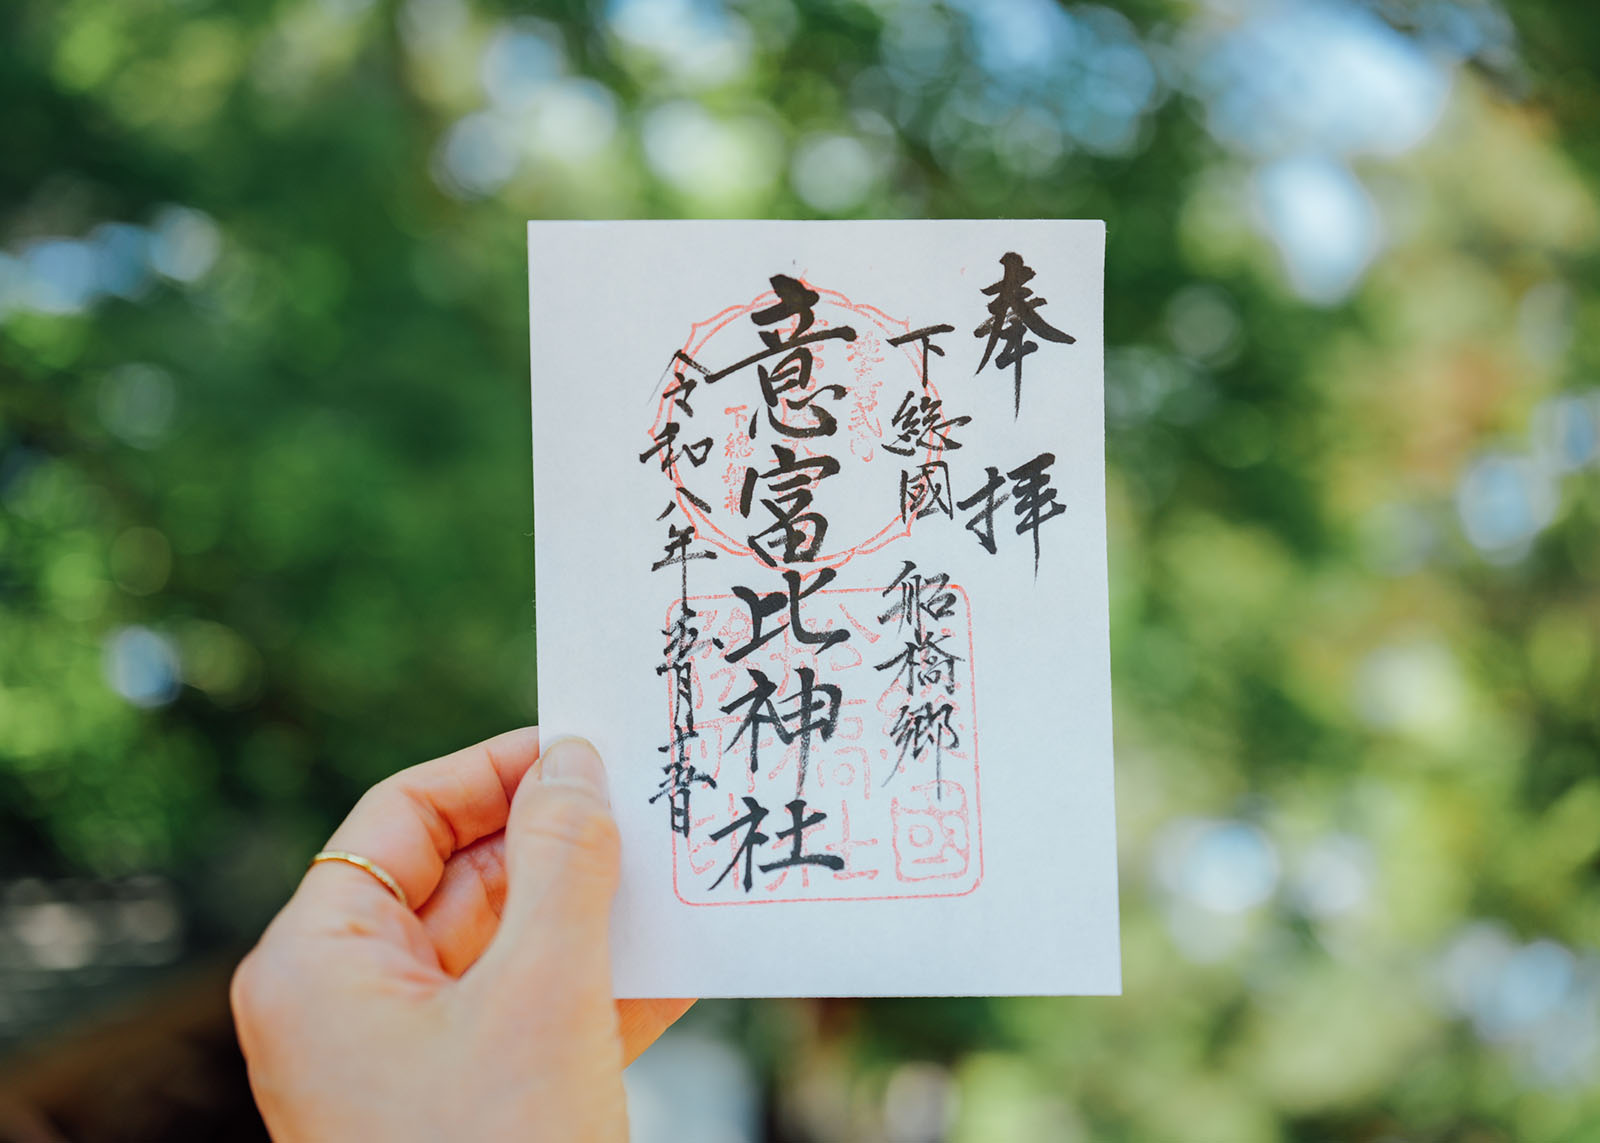 奉拝
下総國 船橋郷
意富比神社
令和八年五月十五日